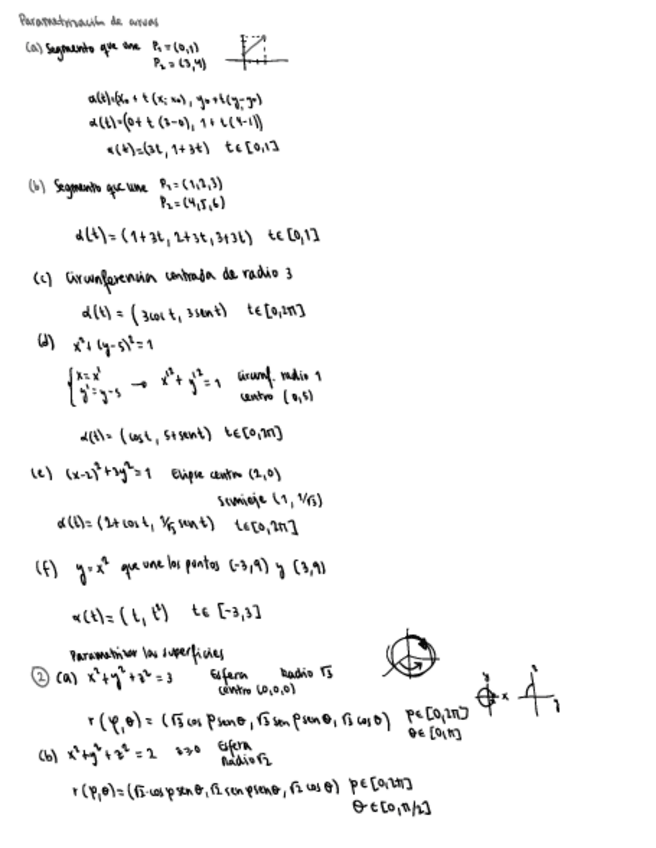 Parametrización de curvas
(a) Segmento que une P₁ = (0,1)
P₂ = (3,4)
α(t)=(x₀ + t(x₁-x₀), y₀+t(y₁-y₀)
α(t)=(0+ t(3-0), 1+t(4-1))
α(t)=(3t, 1+3t) t∈[0,1]
(b) Segmento que une P₁ = (1,2,3)
P₂ = (4,5,6)
α(t) = (1+3t, 2+3t, 3+3t) t∈[0,1]
(c) Circunferencia centrada de radio 3
α(t) = (3cos t, 3sen t) t∈[0,2π]
(d) x²+(y-5)²=1
{x=x'
y'=y-5 → x'²+y'²=1 circunf. radio 1
centro (0,5)
α(t)= (cos t, 5+sent) t∈[0,2π]
(e) (x-2)²+3y²=1 Elipse centro (2,0)
semieje (1, 1/√3)
α(t)=(2+cos t, 1/√3 sen t) t∈[0,2π]
(f) y=x² que une los puntos (-3,9) y (3,9)
α(t)=(t, t²) t∈ [-3,3]
Parametrizar las superficies
② (a) x²+y²+z²=3 Esfera Radio √3
centro (0,0,0)
x
y
r(φ,θ) = (√3 cos φ senθ, √3 sen φ senθ, √3 cosθ) φ∈[0,2π]
θ∈[0,π]
(b) x²+y²+z² = 2 z≥0 Esfera
Radio √2
r(φ,θ)=(√2·cosφ senθ, √2 senφ senθ, √2 cosθ) φ∈[0,2π]
θ∈[0,π/2]